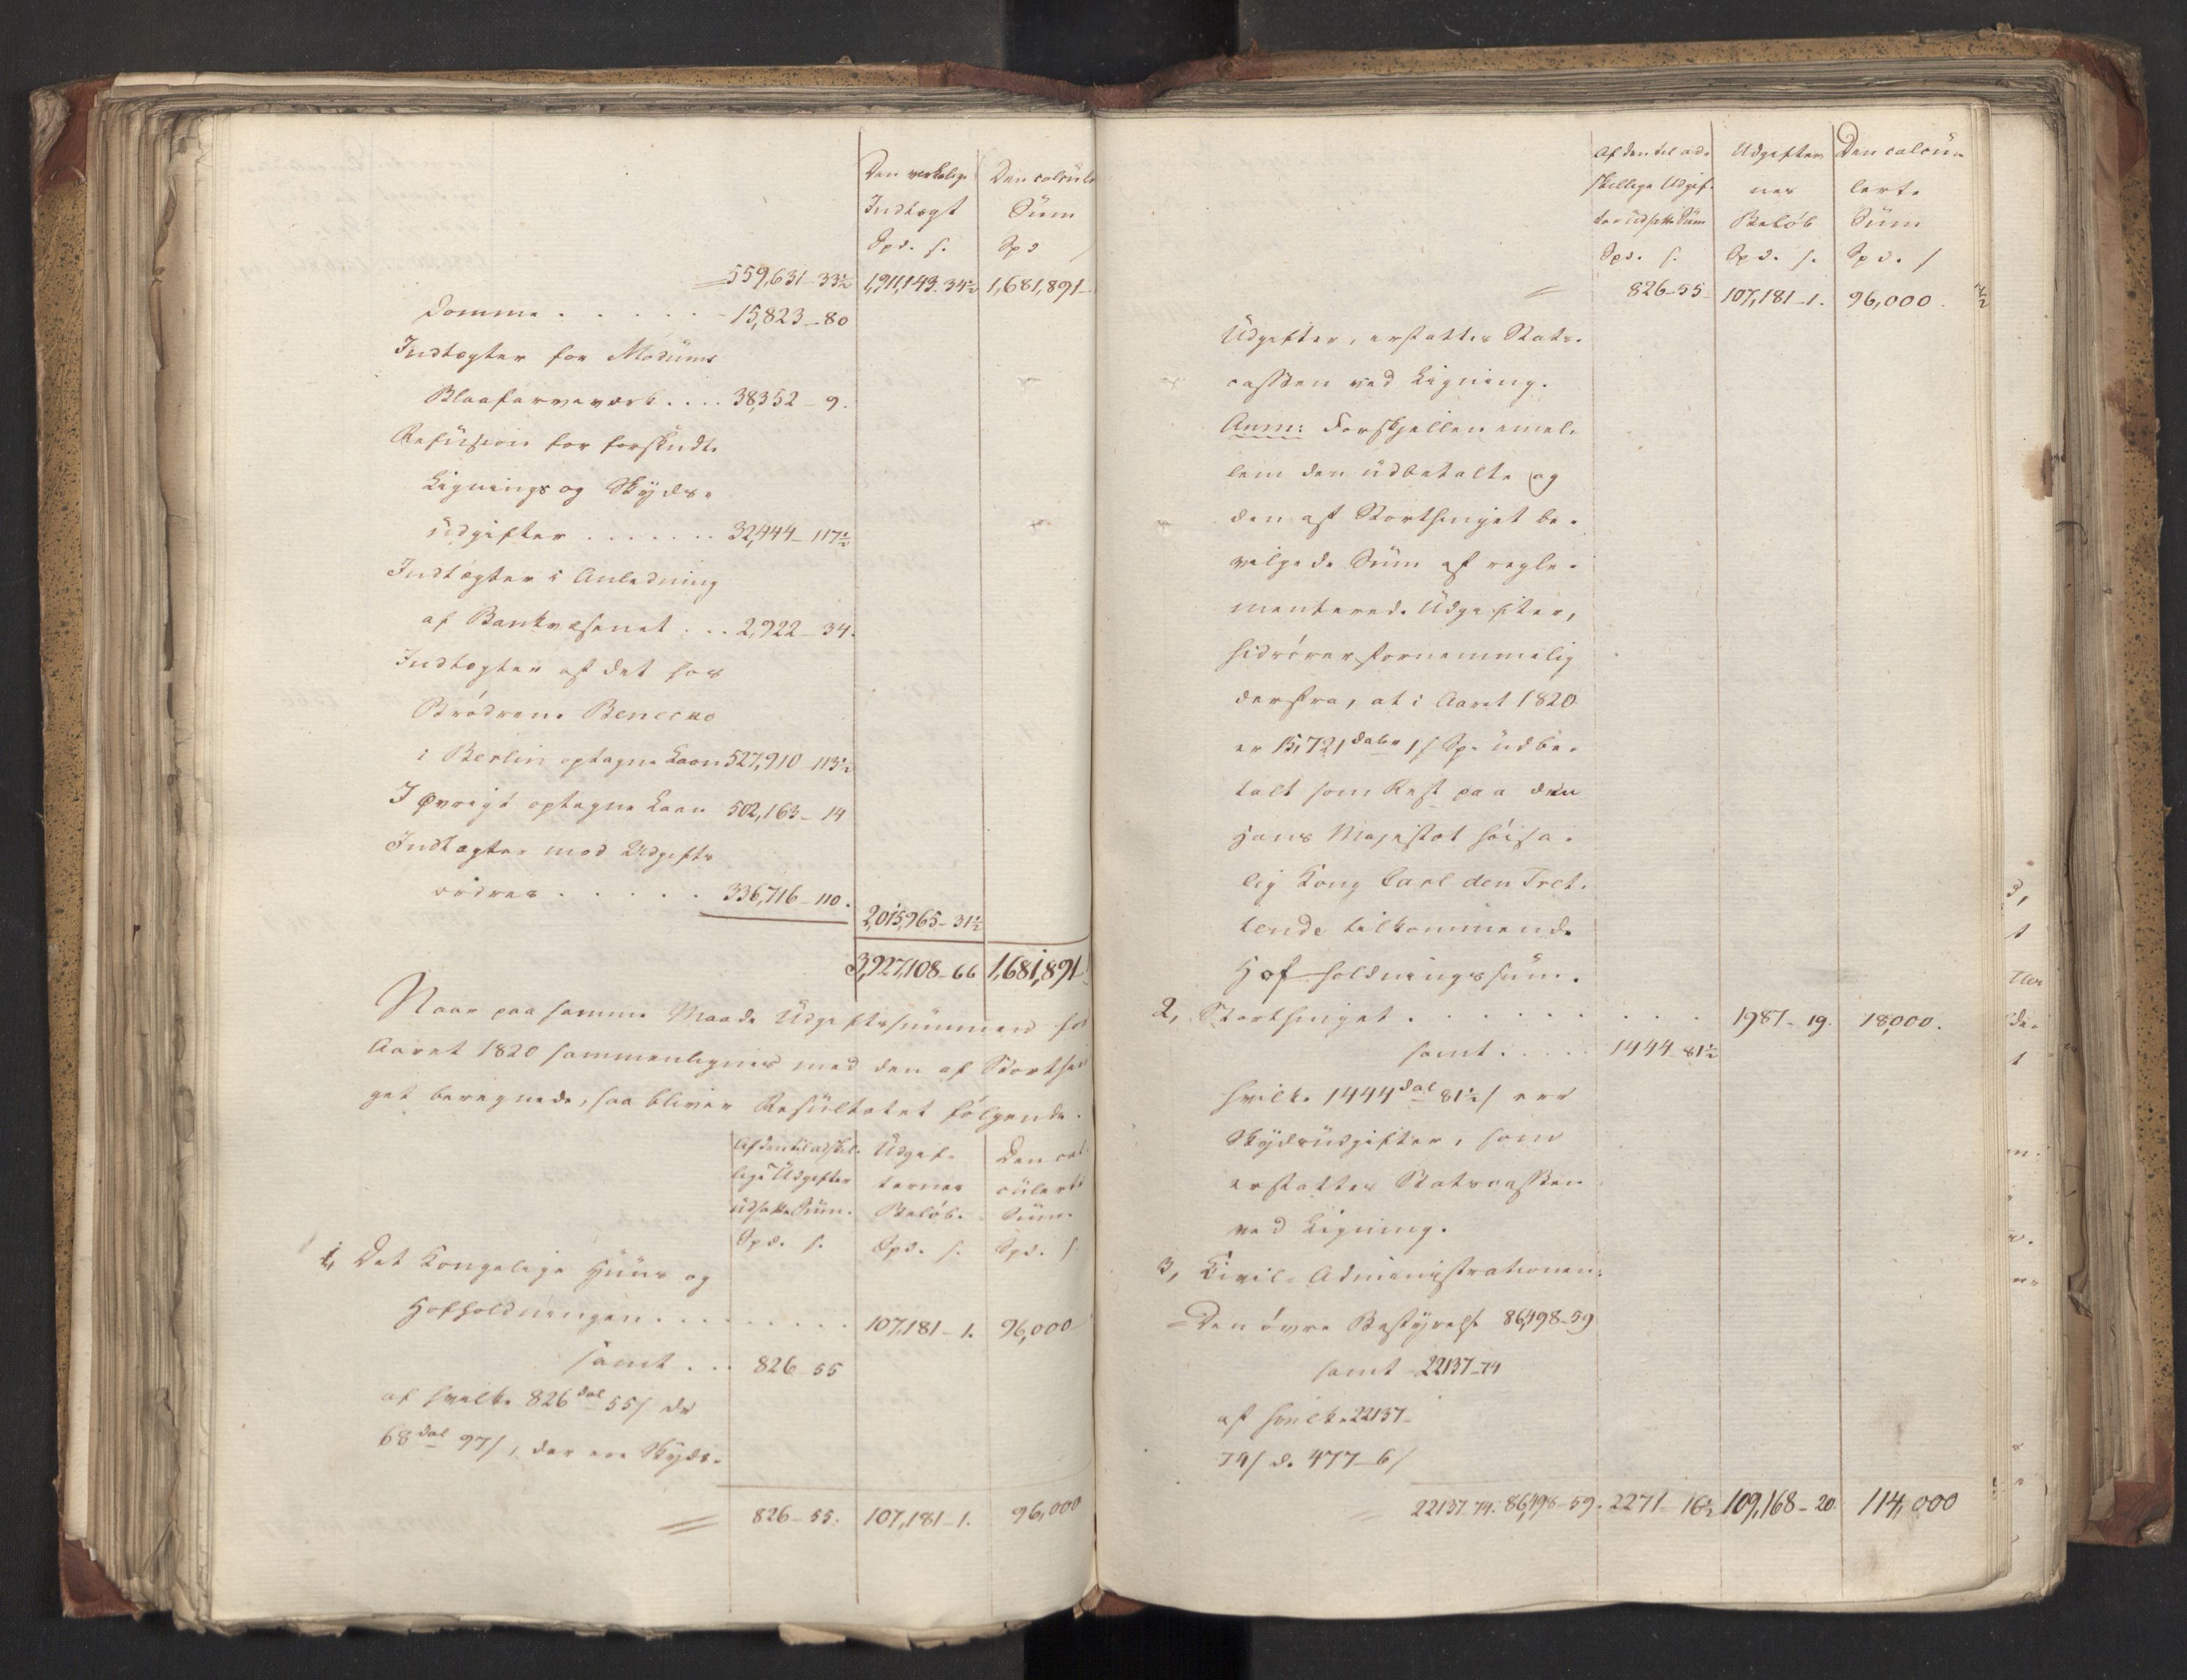 Den verkelige Den calcule
Indtægt Süm
Spd. s. Spd s
559,631-33½ 1,911,143-34½ 1,681,891-
domme . . . . . . 15,823-80
Indtægter for Modums
Blaafarveværk . . . . 38,352-9.
Refüsion for forskudte
Lignings og Skyds-
üdgifter . . . . . . . 32,444-117½
Indtægter i Anledning
af Bankvæsenet . . . 2,922-34.
Indtægter af det hos
Brödrene Benecke
i Berlin optagne Laan 527,910-113½
I Øvrigt optagne Laan 502,163-14
Indtægter mod Udgifts
ordres . . . . . 336,716-110. 2,015,965-31½
3,927,108-66 1,681,891-
Naar paa samme Maade Üdgiftssummen for
Aaret 1820 sammenlignes med den af Storthin
get beregnede, saa bliver Resültatet følgende.
Af den til adskil- Üdgif- Den cal-
lige Üdgifter ternes cülerte
üdsatte Süm. Beløb. Süm.
Spd. s. Spd. s. Spd. s
1, Det Kongelige Hüüs og
Hofholdningen . . . . . . . . . 107,181-1. 96,000-
samt . . . 826-55
af hvilke 826 dal 55 s de
68 dal 97 s, der ere Skyds-
826-55. 107,181-1. 96,000
Af den til ad- Udgifter Den calcü-
skillige Udgif- nes lerte
ter üdsatte Süm Beløb Süm
Spd. s. Spd. s. Spd. s
826-55 107,181-1. 96,000.
Üdgifter, erstattes Stats-
cassen ved Ligning.
Anm: Forskjellen imel-
lem den üdbetalte og
den af Storthinget be-
vilgede Süm af regle-
menterede Üdgifter,
hidrører fornemmelig
derfra, at i Aaret 1820
er 15,721 daler 1 s Sp. üdbe-
talt som Rest paa den
Hans Majestæt høisa-
lig Kong Carl den Tret-
tende tilkommende
Hof-holdningssüm.
2, Storthinget . . . . . . . . . 1987-19. 18,000.
samt . . . . . 1444-81½
hvilke 1444 dal 81½ s ere
Skydsüdgifter, som
erstattes Statscassen
ved Ligning.
3, Civil-Administrationen:
Den øvre Bestyrelse 86,498-59
samt 22137-74
af hvilke 22137-
74 s d. 477-6 s
22137-74. 86,498-59. 2271-16½ 109,168-20 114,000